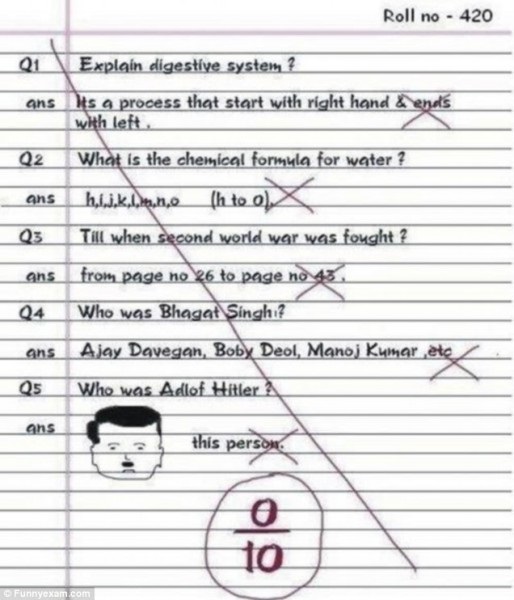 Roll no - 420
Q1 Explain digestive system ?
ans Its a process that start with right hand & ends
with left .
Q2 What is the chemical formula for water ?
ans h,i,j,k,l,m,n,o (h to o)
Q3 Till when second world war was fought ?
ans from page no 26 to page no 43 .
Q4 Who was Bhagat Singh ?
ans Ajay Davegan, Boby Deol, Manoj Kumar ,etc
Q5 Who was Adlof Hitler ?
ans this person.
0
10
© Funnyexam.com